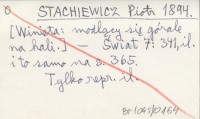 STACHIEWICZ Piotr 1894.
[Winieta: modlący się górale
na hali.] – Świat 7: 341, il.
i to samo na s. 365.
Tylko repr. il.